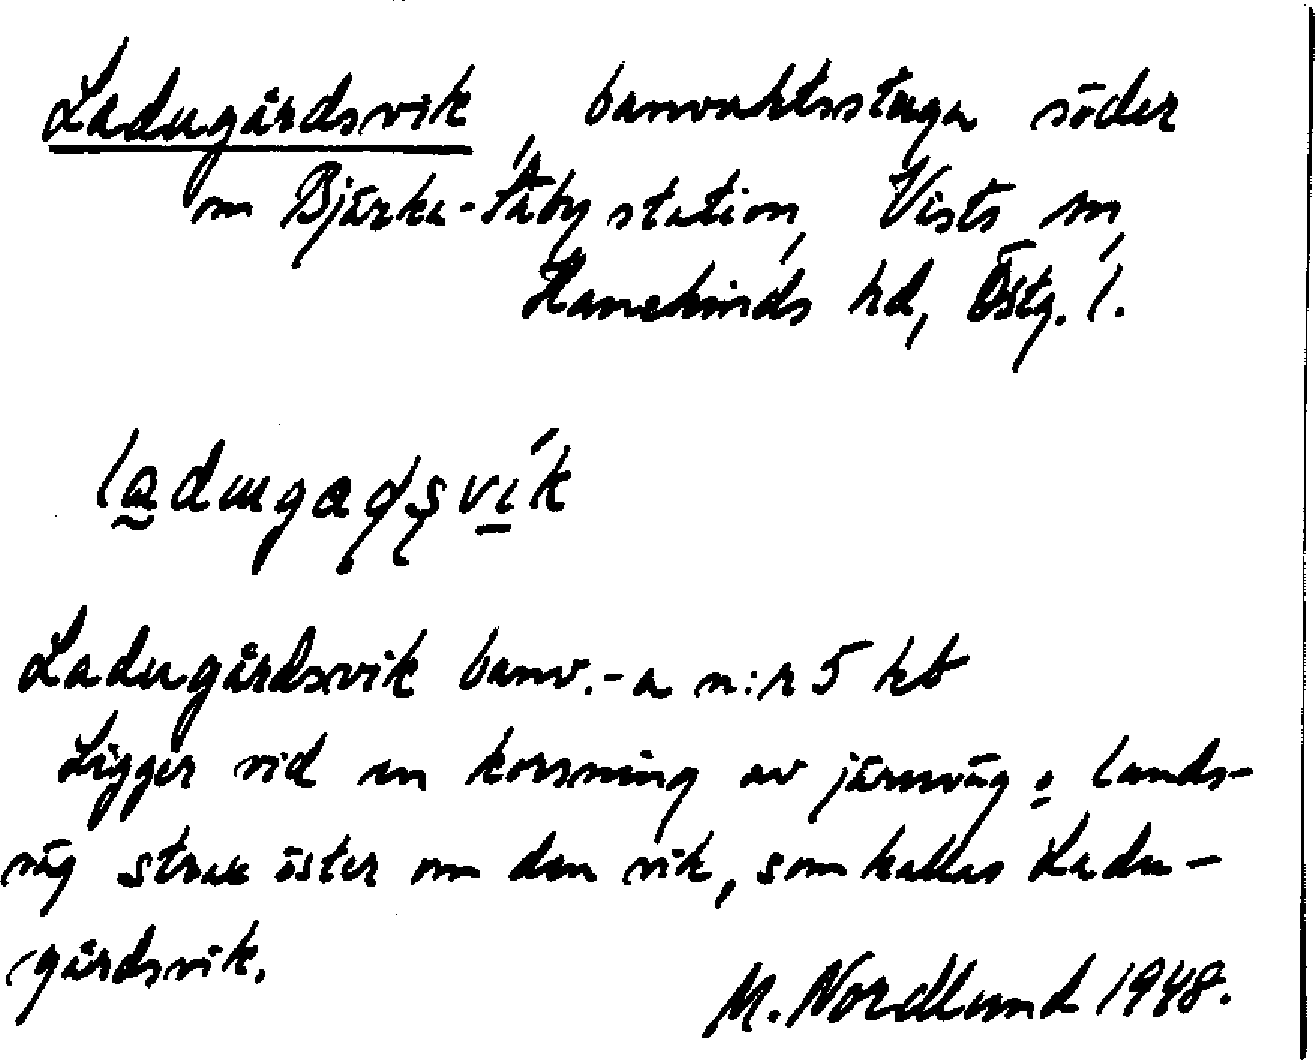 Ladugårdsvik, banvaktsstuga söder
om Bjärka-Säby station, Vists sn,
Hanekinds hd, Östg. l.
Ladugårdsvik banv.-a n:r 5 kb
Ligger vid en korsning av järnväg o lands-
väg strax öster om den vik, som kallas Ladu-
gårdsvik.
M. Nordlund 1948.